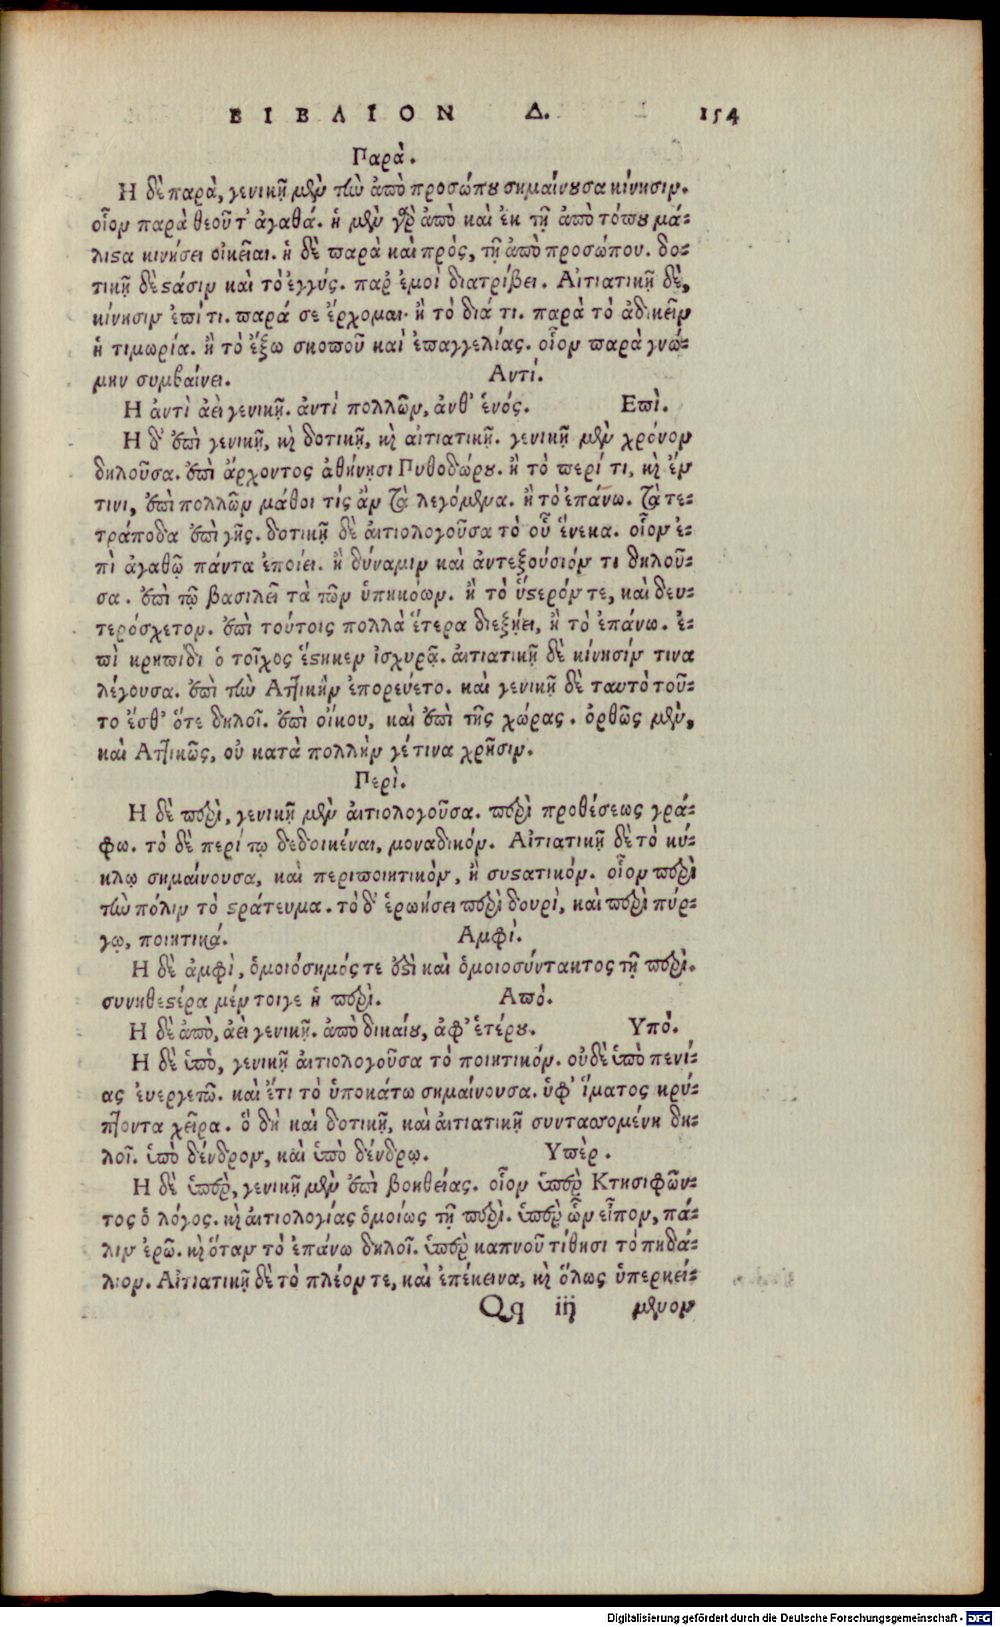 ΒΙΒΛΙΟΝ Δ. 154
Παρά.
Η δὲ παρὰ, γενικῇ μὲν τὴν ἀπὸ προσώπου σημαίνουσα κίνησιν.
οἷον παρὰ θεοῦ τ' ἀγαθά. ἡ μὲν γὰρ ἀπὸ καὶ ἐκ τῇ ἀπὸ τόπου μά-
λιστα κινήσει οἰκεῖαι. ἡ δὲ παρὰ καὶ πρός, τῇ ἀπὸ προσώπου. δο-
τικῇ δὲ στάσιν καὶ τὸ ἐγγύς. παρ' ἐμοὶ διατρίβει. Αἰτιατικῇ δὲ,
κίνησιν ἐπί τι. παρά σε ἔρχομαι· ἢ τὸ διά τι. παρὰ τὸ ἀδικεῖν
ἡ τιμωρία. ἢ τὸ ἔξω σκοποῦ καὶ ἐπαγγελίας. οἷον παρὰ γνώ-
μην συμβαίνει. Αντί.
Η ἀντὶ ἀεὶ γενικῇ. ἀντὶ πολλῶν, ἀνθ' ἑνός. Επὶ.
Η δ' ἐπὶ γενικῇ, καὶ δοτικῇ, καὶ αἰτιατικῇ. γενικῇ μὲν χρόνον
δηλοῦσα. ἐπὶ ἄρχοντος ἀθήνησι Πυθοδώρου. ἢ τὸ περί τι, καὶ ἔν
τινι, ἐπὶ πολλῶν μάθοι τίς ἂν τὰ λεγόμενα. ἢ τὸ ἐπάνω. τὰ τε-
τράποδα ἐπὶ γῆς. δοτικῇ δὲ αἰτιολογοῦσα τὸ οὗ ἕνεκα. οἷον ἐ-
πὶ ἀγαθῷ πάντα ἐποίει. ἢ δύναμιν καὶ ἀντεξούσιόν τι δηλοῦ-
σα. ἐπὶ τῷ βασιλεῖ τὰ τῶν ὑπηκόων. ἢ τὸ ὕστερόν τε, καὶ δευ-
τερόσχετον. ἐπὶ τούτοις πολλὰ ἕτερα διεξῄει, ἢ τὸ ἐπάνω. ἐ-
πὶ κρηπῖδι ὁ τοῖχος ἕστηκεν ἰσχυρᾷ. αἰτιατικῇ δὲ κίνησίν τινα
λέγουσα. ἐπὶ τὴν Ἀττικὴν ἐπορεύετο. καὶ γενικῇ δὲ ταυτὸ τοῦ-
το ἔσθ' ὅτε δηλοῖ. ἐπὶ οἴκου, καὶ ἐπὶ τῆς χώρας. ὀρθῶς μὲν,
καὶ Ἀττικῶς, οὐ κατὰ πολλὴν γέ τινα χρῆσιν.
Περὶ.
Η δὲ περὶ, γενικῇ μὲν αἰτιολογοῦσα. περὶ προθέσεως γρά-
φω. τὸ δὲ περί τῳ δεδοικέναι, μοναδικόν. Αἰτιατικῇ δὲ τὸ κύ-
κλῳ σημαίνουσα, καὶ περιποιητικὸν, ἢ συστατικόν. οἷον περὶ
τὴν πόλιν τὸ στράτευμα. τὸ δ' ἐρωήσει περὶ δουρὶ, καὶ περὶ πύρ-
γῳ, ποιητικά. Αμφὶ.
Η δὲ ἀμφὶ, ὁμοιόσημός τε ἐστὶ καὶ ὁμοιοσύντακτος τῇ περὶ.
συνηθεστέρα μέν τοιγε ἡ περὶ. Από.
Η δὲ ἀπὸ, ἀεὶ γενικῇ. ἀπὸ δικαίου, ἀφ' ἑτέρου. Υπό.
Η δὲ ὑπὸ, γενικῇ αἰτιολογοῦσα τὸ ποιητικόν. οὐδὲ ὑπὸ πενί-
ας ἐνεργετῶ. καὶ ἔτι τὸ ὑποκάτω σημαίνουσα. ὑφ' ἵματος κρύ-
πτοντα χεῖρα. ὃ δὴ καὶ δοτικῇ, καὶ αἰτιατικῇ συντασσομένη δη-
λοῖ. ὑπὸ δένδρον, καὶ ὑπὸ δένδρῳ. Υπὲρ.
Η δὲ ὑπὲρ, γενικῇ μὲν ἐπὶ βοηθείας. οἷον ὑπὲρ Κτησιφῶν-
τος ὁ λόγος. καὶ αἰτιολογίας ὁμοίως τῇ περὶ. ὑπὲρ ὧν εἶπον, πά-
λιν ἐρῶ. καὶ ὅταν τὸ ἐπάνω δηλοῖ. ὑπὲρ καπνοῦ τίθησι τὸ πηδά-
λιον. Αἰτιατικῇ δὲ τὸ πλέον τε, καὶ ἐπέκεινα, καὶ ὅλως ὑπερκεί-
Qq iij μενον
Digitalisierung gefördert durch die Deutsche Forschungsgemeinschaft - DFG